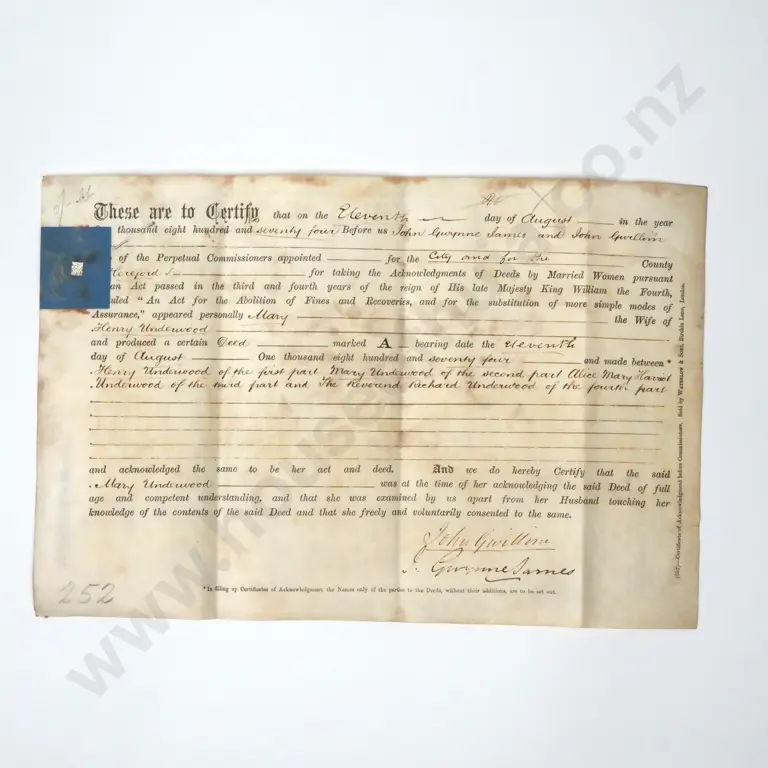 These are to Certify that on the Eleventh day of August in the year
thousand eight hundred and seventy four Before us John Gwynne James and John Gwillim
of the Perpetual Commissioners appointed for the City and for the County
Hereford for taking the Acknowledgments of Deeds by Married Women pursuant
an Act passed in the third and fourth years of the reign of His late Majesty King William the Fourth,
"An Act for the Abolition of Fines and Recoveries, and for the substitution of more simple modes of
Assurance," appeared personally Mary the Wife of
Henry Underwood
and produced a certain Deed marked A bearing date the eleventh
day of August One thousand eight hundred and seventy four and made between*
Henry Underwood of the first part Mary Underwood of the second part Alice Mary Harriot
Underwood of the third part and The Reverend Richard Underwood of the fourth part
and acknowledged the same to be her act and deed. And we do hereby Certify that the said
Mary Underwood was at the time of her acknowledging the said Deed of full
age and competent understanding, and that she was examined by us apart from her Husband touching her
knowledge of the contents of the said Deed and that she freely and voluntarily consented to the same.
John Gwillim
J. Gwynne James
*In filling up Certificates of Acknowledgment, the Names only of the parties to the Deeds, without their additions, are to be set out.
252
(252)—Certificate of Acknowledgment before Commissioners. Sold by Waterlow & Sons, Birchin Lane, London.